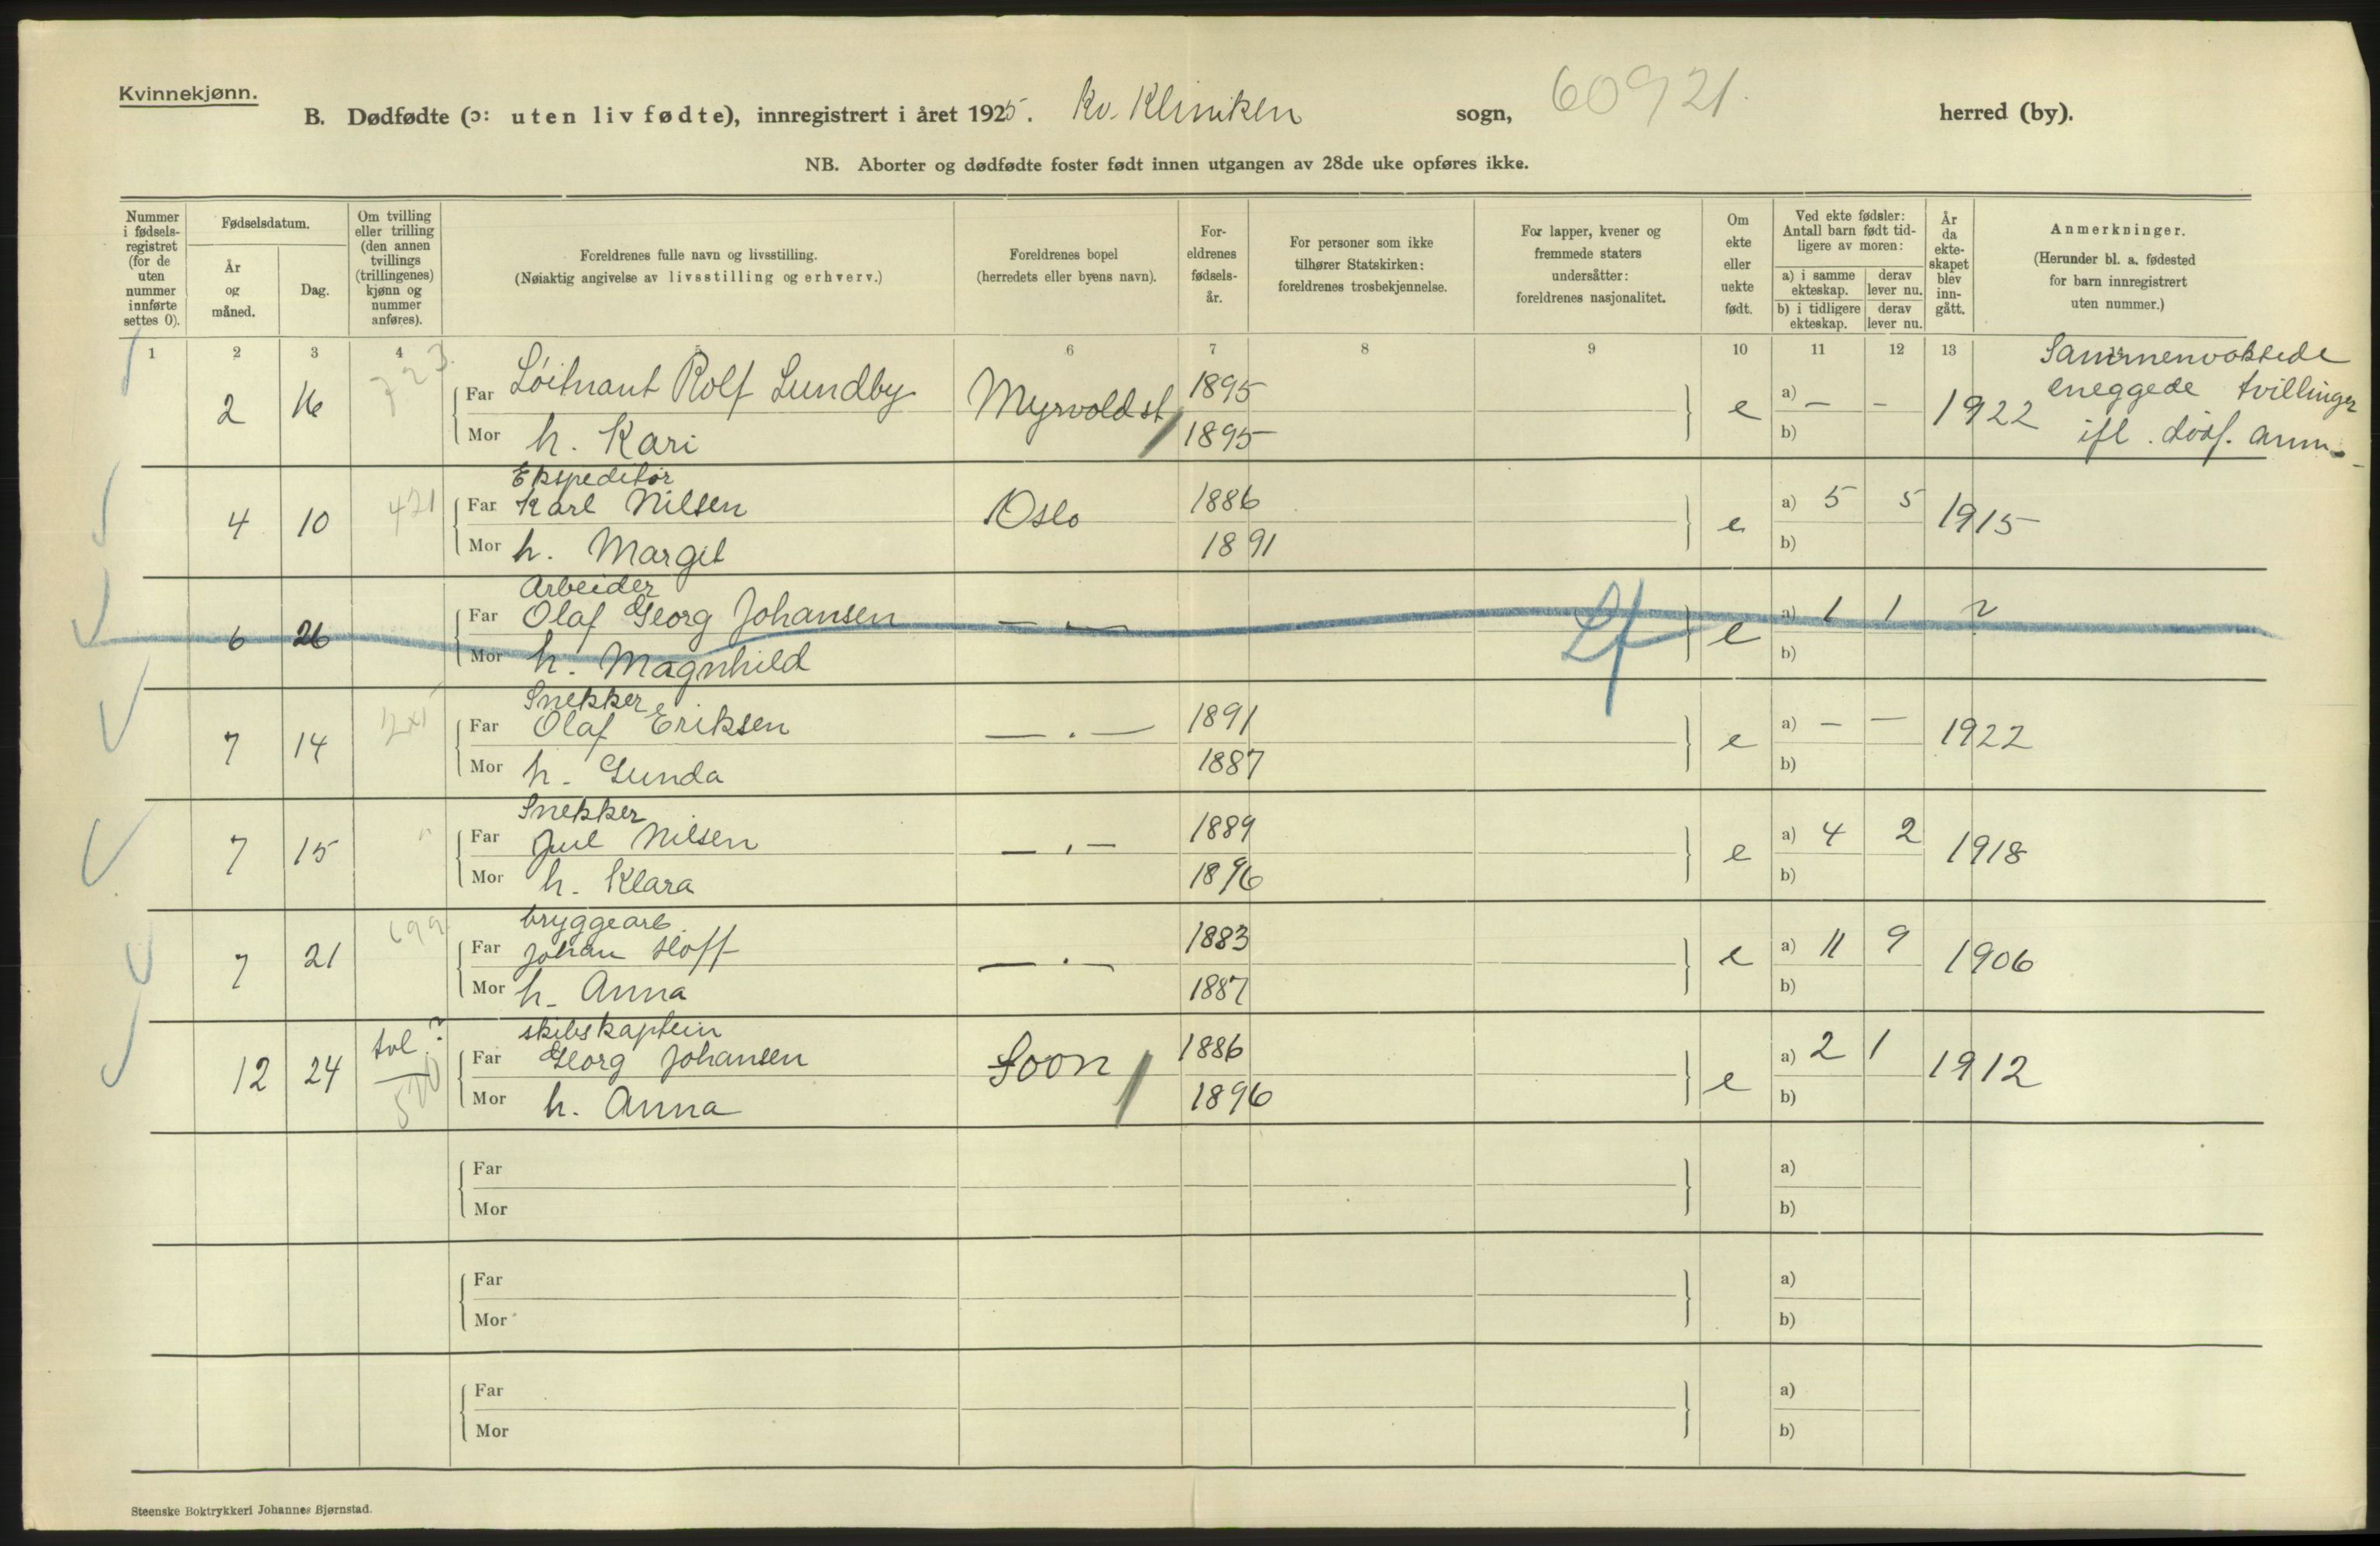 Kvinnekjønn.
B. Dødfødte (ɔ: uten liv fødte), innregistrert i året 1925. Kv. Kliniken sogn, 60921. herred (by).
NB. Aborter og dødfødte foster født innen utgangen av 28de uke opføres ikke.
Nummer i fødsels-registret (for de uten nummer innførte settes 0).
Fødselsdatum.
År og måned.
Dag.
Om tvilling eller trilling (den annen tvillings (trillingenes) kjønn og nummer anføres).
Foreldrenes fulle navn og livsstilling.
(Nøiaktig angivelse av livsstilling og erhverv.)
Foreldrenes bopel
(herredets eller byens navn).
For-eldrenes fødsels-år.
For personer som ikke tilhører Statskirken: foreldrenes trosbekjennelse.
For lapper, kvener og fremmede staters undersåtter: foreldrenes nasjonalitet.
Om ekte eller uekte født.
Ved ekte fødsler: Antall barn født tid-ligere av moren:
a) i samme ekteskap. derav lever nu.
b) i tidligere ekteskap. derav lever nu.
År da ekte-skapet blev inn-gått.
Anmerkninger.
(Herunder bl. a. fødested for barn innregistrert uten nummer.)
1 2 3 4 5 6 7 8 9 10 11 12 13
2 16 723. Far Løitnant Rolf Lundby Myrvold st 1895 e a) – – 1922 Sammenvoksede
eneggede tvillinger
Mor h. Kari 1895 b) ifl.
Ekspeditør
4 10 421 Far Karl Nilsen Oslo 1886 e a) 5 5 1915
Mor h. Margit 1891 b)
Arbeider
6 26 Far Olaf Georg Johansen — . — Lf e a) 1 1 ?
Mor h. Magnhild b)
Snekker
7 14 Far Olaf Eriksen — . — 1891 e a) – — 1922
Mor h. Gunda 1887 b)
Snekker
7 15 " Far Jul Nilsen — . — 1889 e a) 4 2 1918
Mor h. Klara 1896 b)
bryggearb.
7 21 699 Far Johan Hoff — . — 1883 e a) 11 9 1906
Mor h. Anna 1887 b)
skibskaptein
12 24 tvl. ? Far Georg Johansen Soon 1886 e a) 2 1 1912
Mor h. Anna 1896 b)
Far a)
Mor b)
Far a)
Mor b)
Far a)
Mor b)
Steenske Boktrykkeri Johannes Bjørnstad.